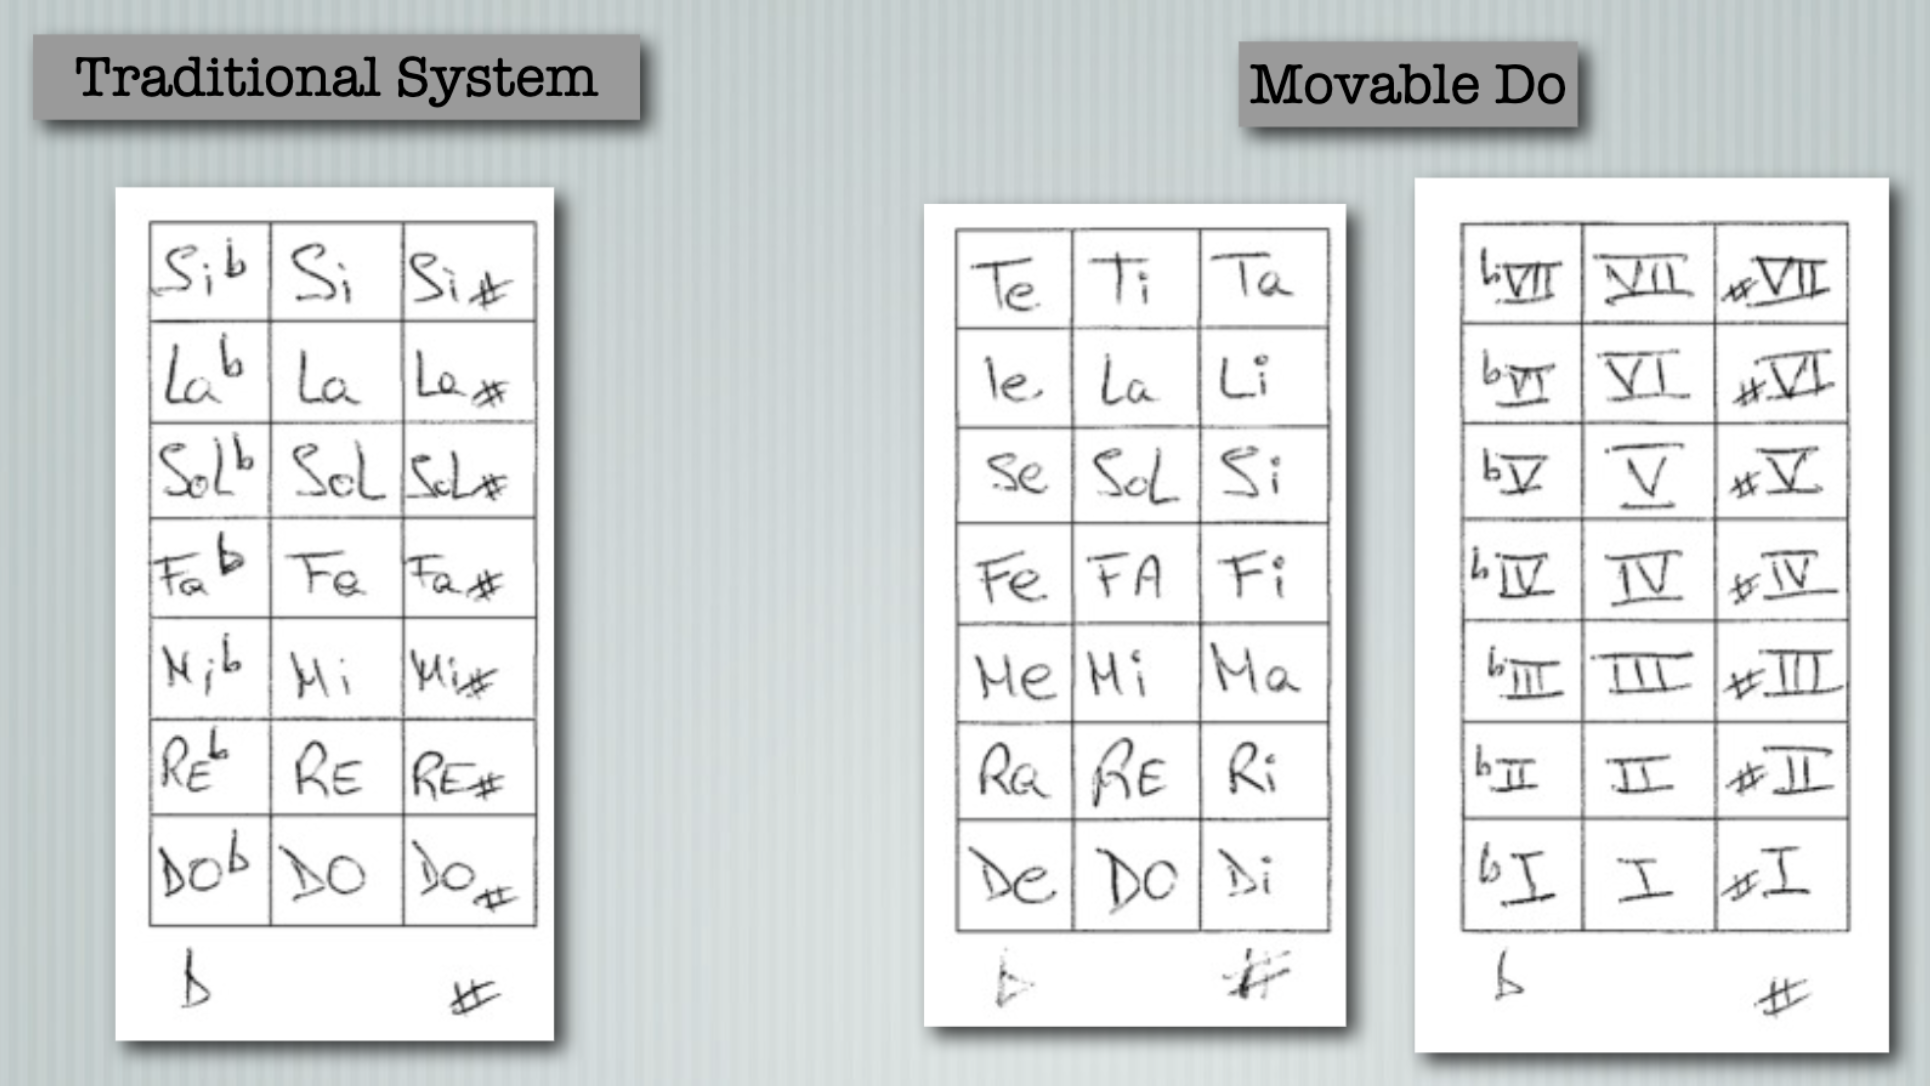 Traditional System
Movable Do
Sib Si Si#
Lab La La#
SoLb SoL SoL#
Fab Fa Fa#
Mib Mi Mi#
REb RE RE#
DOb DO DO#
b #
Te Ti Ta
le La Li
Se SoL Si
Fe FA Fi
Me Mi Ma
Ra RE Ri
De DO Di
b #
bVII VII #VII
bVI VI #VI
bV V #V
bIV IV #IV
bIII III #III
bII II #II
bI I #I
b #